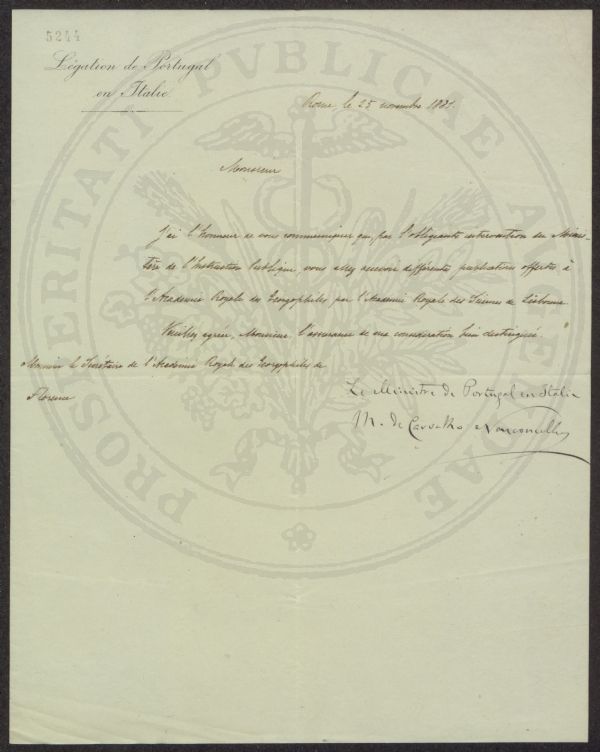 5244
Légation de Portugal
en Italie
Rome, le 25 novembre 1881.
Monsieur
J'ai l'honneur de vous communiquer que, par l'obligeante intervention du Minis-
tère de l'Instruction Publique, vous allez recevoir différentes publications offertes à
l'Academie Royale des Georgophiles par l'Academie Royale des Sciences de Lisbonne
Veuillez agréer, Monsieur, l'assurance de ma considération bien distinguée.
Monsieur le Secrétaire de l'Académie Royale des Georgophiles de
Florence
Le Ministre de Portugal en Italie
M. de Carvalho e Vasconcellos
PROSPERITATI PVBLICAE AVGENDAE